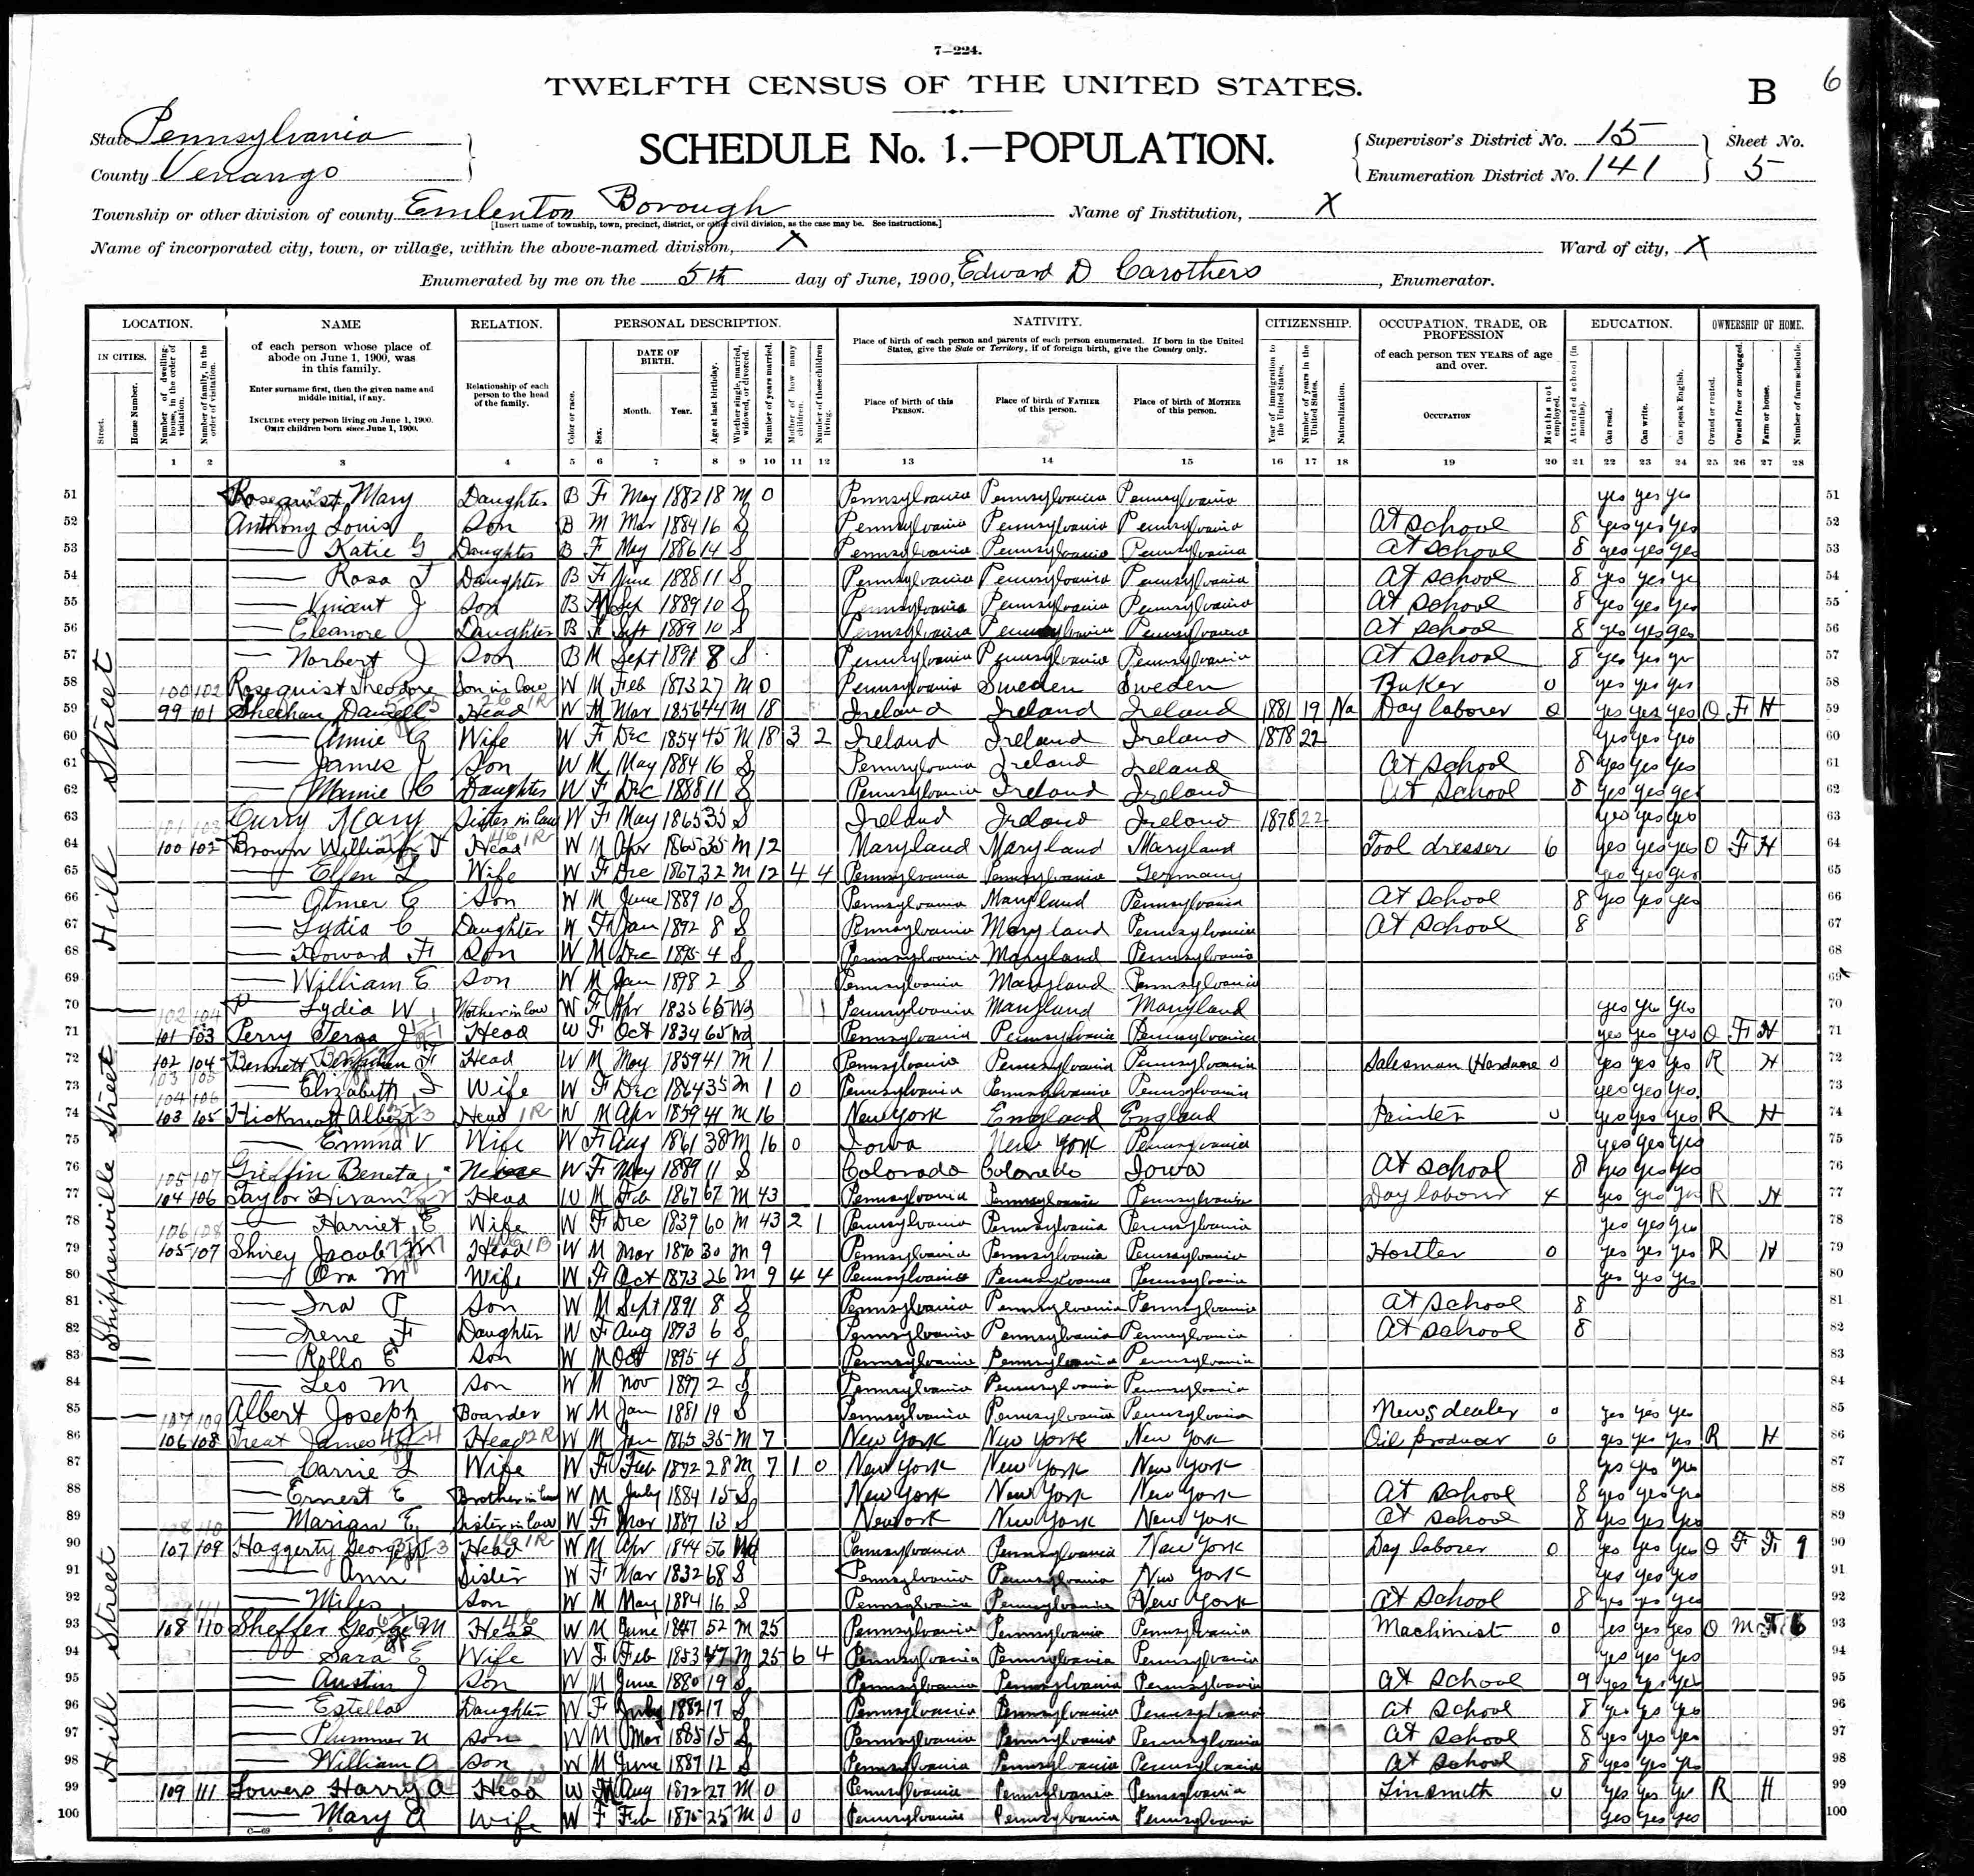 7—224.
TWELFTH CENSUS OF THE UNITED STATES.
B 6
State Pennsylvania
County Venango
SCHEDULE No. 1.—POPULATION.
Supervisor's District No. 15
Enumeration District No. 141
Sheet No. 5
Township or other division of county Emlenton Borough Name of Institution, X
[Insert name of township, town, precinct, district, or other civil division, as the case may be. See instructions.]
Name of incorporated city, town, or village, within the above-named division, X Ward of city, X
Enumerated by me on the 5th day of June, 1900, Edward D Carothers, Enumerator.
LOCATION. NAME RELATION. PERSONAL DESCRIPTION. NATIVITY. CITIZENSHIP. OCCUPATION, TRADE, OR PROFESSION EDUCATION. OWNERSHIP OF HOME.
IN CITIES. Street. House Number. Number of dwelling-house, in the order of visitation. Number of family, in the order of visitation.
of each person whose place of abode on June 1, 1900, was in this family.
Enter surname first, then the given name and middle initial, if any.
INCLUDE every person living on June 1, 1900.
OMIT children born since June 1, 1900.
Relationship of each person to the head of the family.
Color or race. Sex. DATE OF BIRTH. Month. Year. Age at last birthday. Whether single, married, widowed, or divorced. Number of years married. Mother of how many children. Number of these children living.
Place of birth of each person and parents of each person enumerated. If born in the United States, give the State or Territory, if of foreign birth, give the Country only.
Place of birth of this PERSON. Place of birth of FATHER of this person. Place of birth of MOTHER of this person.
Year of immigration to the United States. Number of years in the United States. Naturalization.
of each person TEN YEARS of age and over.
OCCUPATION Months not employed.
Attended school (in months). Can read. Can write. Can speak English.
Owned or rented. Owned free or mortgaged. Farm or house. Number of farm schedule.
1 2 3 4 5 6 7 8 9 10 11 12 13 14 15 16 17 18 19 20 21 22 23 24 25 26 27 28
51 Rosequist Mary Daughter B F May 1882 18 M 0 Pennsylvania Pennsylvania Pennsylvania yes yes yes 51
52 Anthony Louis Son B M Mar 1884 16 S Pennsylvania Pennsylvania Pennsylvania At school 8 yes yes yes 52
53 — Katie G Daughter B F May 1886 14 S Pennsylvania Pennsylvania Pennsylvania At school 8 yes yes yes 53
54 — Rosa Daughter B F June 1888 11 S Pennsylvania Pennsylvania Pennsylvania At school 8 yes yes ye 54
55 — Vincent J Son B M Sep 1889 10 S Pennsylvania Pennsylvania Pennsylvania At school 8 yes yes yes 55
56 — Eleanore Daughter B F Sept 1889 10 S Pennsylvania Pennsylvania Pennsylvania At school 8 yes yes yes 56
57 — Norbert J Son B M Sept 1891 8 S Pennsylvania Pennsylvania Pennsylvania At school 8 yes yes yr 57
58 100 102 Rosequist Theodore Son in law W M Feb 1873 27 M 0 Pennsylvania Sweden Sweden Baker 0 yes yes yes 58
59 99 101 Sheehan Daniel Head W M Mar 1856 44 M 18 Ireland Ireland Ireland 1881 19 Na Day laborer 0 yes yes yes O F H 59
60 — Annie G Wife W F Dec 1854 45 M 18 3 2 Ireland Ireland Ireland 1878 22 yes yes yes 60
61 — James J Son W M May 1884 16 S Pennsylvania Ireland Ireland At school 8 yes yes yes 61
62 — Mamie C Daughter W F Dec 1888 11 S Pennsylvania Ireland Ireland At school 8 yes yes yes 62
63 101 103 Curry Mary Sister in law W F May 1865 35 S Ireland Ireland Ireland 1878 22 yes yes yes 63
64 100 102 Brown William T Head W M Apr 1865 35 M 12 Maryland Maryland Maryland Tool dresser 6 yes yes yes O F H 64
65 — Ellen L Wife W F Dec 1867 32 M 12 4 4 Pennsylvania Pennsylvania Germany yes yes yes 65
66 — C Son W M June 1889 10 S Pennsylvania Maryland Pennsylvania At school 8 yes yes yes 66
67 — Lydia C Daughter W F Jan 1892 8 S Pennsylvania Maryland Pennsylvania At school 8 67
68 — Howard F Son W M Dec 1895 4 S Pennsylvania Maryland Pennsylvania 68
69 — William E Son W M Jan 1898 2 S Pennsylvania Maryland Pennsylvania 69
70 102 104 — Lydia W Mother in law W F Apr 1835 65 Wd Pennsylvania Maryland Maryland yes yes yes 70
71 101 103 Perry Teresa J Head W F Oct 1834 65 Wd Pennsylvania Pennsylvania Pennsylvania yes yes yes O F H 71
72 102 104 Bennett Benjamin F Head W M May 1859 41 M 1 Pennsylvania Pennsylvania Pennsylvania Salesman (Hardware 0 yes yes yes R H 72
73 — Elizabeth Wife W F Dec 1864 35 M 1 0 Pennsylvania Pennsylvania Pennsylvania yes yes yes 73
74 103 105 Hickmott Albert Head W M Apr 1859 41 M 16 New York England England Painter 0 yes yes yes R H 74
75 — Emma V Wife W F Aug 1861 38 M 16 0 Iowa New York Pennsylvania yes yes yes 75
76 105 107 Griffin Beneta Neice W F May 1889 11 S Colorado Colorado Iowa At school 8 yes yes yes 76
77 104 106 Taylor Hiram Head W M Feb 67 M 43 Pennsylvania Pennsylvania Pennsylvania Day laborer 4 yes yes yes R H 77
78 106 108 — Harriet E Wife W F Dec 1839 60 M 43 2 1 Pennsylvania Pennsylvania Pennsylvania yes yes yes 78
79 105 107 Shirey Jacob Head W M Mar 1870 30 M 9 Pennsylvania Pennsylvania Pennsylvania Hostler 0 yes yes yes R H 79
80 — Ora M Wife W F Oct 1873 26 M 9 4 4 Pennsylvania Pennsylvania Pennsylvania yes yes yes 80
81 — Ira P Son W M Sept 1891 8 S Pennsylvania Pennsylvania Pennsylvania At school 8 81
82 — Irene F Daughter W F Aug 1893 6 S Pennsylvania Pennsylvania Pennsylvania At school 8 82
83 — Rollo E Son W M Oct 1895 4 S Pennsylvania Pennsylvania Pennsylvania 83
84 — Leo M Son W M Nov 1897 2 S Pennsylvania Pennsylvania Pennsylvania 84
85 107 109 Albert Joseph Boarder W M Jan 1881 19 S Pennsylvania Pennsylvania Pennsylvania News dealer 0 yes yes yes 85
86 106 108 Treat James Head W M Jan 1865 35 M 7 New York New York New York Oil producer 0 yes yes yes R H 86
87 — Carrie L Wife W F Feb 1872 28 M 7 1 0 New York New York New York yes yes yes 87
88 — Ernest E Brother in law W M July 1884 15 S New York New York New York At school 8 yes yes yrs 88
89 — Marian E Sister in law W F Mar 1887 13 S New York New York New York At school 8 yes yes yes 89
90 107 109 Haggerty George Head W M Apr 1844 56 Wd Pennsylvania Pennsylvania New York Day laborer 0 yes yes yes O F F 9 90
91 — Ann Sister W F Mar 1832 68 S Pennsylvania Pennsylvania New York yes yes yes 91
92 — Miles Son W M May 1884 16 S Pennsylvania Pennsylvania New York At school 8 yes yes yes 92
93 108 110 Sheffer George M Head W M June 1847 52 M 25 Pennsylvania Pennsylvania Pennsylvania Machinist 0 yes yes yes O M F 6 93
94 — Sara E Wife W F Feb 1853 47 M 25 6 4 Pennsylvania Pennsylvania Pennsylvania yes yes yes 94
95 — Austin J Son W M June 1880 19 S Pennsylvania Pennsylvania Pennsylvania At school 9 yes yes yes 95
96 — Estella Daughter W F July 1882 17 S Pennsylvania Pennsylvania Pennsylvania At school 8 yes yes yes 96
97 — Plummer U Son W M Mar 1885 15 S Pennsylvania Pennsylvania Pennsylvania At school 8 yes yes yes 97
98 — William A Son W M June 1887 12 S Pennsylvania Pennsylvania Pennsylvania At school 8 yes yes yrs 98
99 109 111 Lowers Harry A Head W M Aug 1872 27 M 0 Pennsylvania Pennsylvania Pennsylvania Tinsmith 0 yes yes ye R H 99
100 — Mary A Wife W F Feb 1875 25 M 0 0 Pennsylvania Pennsylvania Pennsylvania yes yes yes 100
Hill Street
Shippenville Street
Hill Street